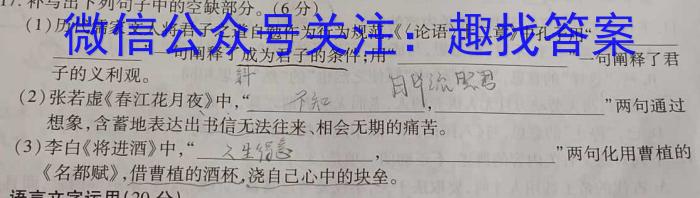 17. 补写出下列句子中的空缺部分。(6分)
微信公众号关注：趣找答案
(1)历 儒家文人将君子之道自觉作为行为规范 《论语 章》 孔子用“
一句阐释了成为君子的条件;用“ 一句阐释了君
子的义利观。
(2)张若虚《春江花月夜》中,“ 不知 , ”两句通过
想象,含蓄地表达出书信无法往来、相会无期的痛苦。
(3)李白《将进酒》中,“ 人生得意 , ”两句化用曹植的
《名都赋》,借曹植的酒杯,浇自己心中的块垒。
语言文字运用(20分)